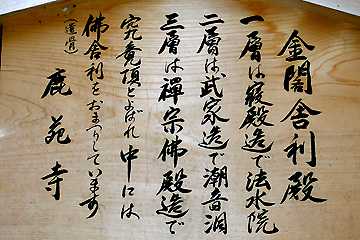 金閣舎利殿
一層は寝殿造で法水院
二層は武家造で潮音洞
三層は禅宗佛殿造で
究竟頂とよばれ中には
佛舎利をおまつりしています
（遺骨）
鹿苑寺